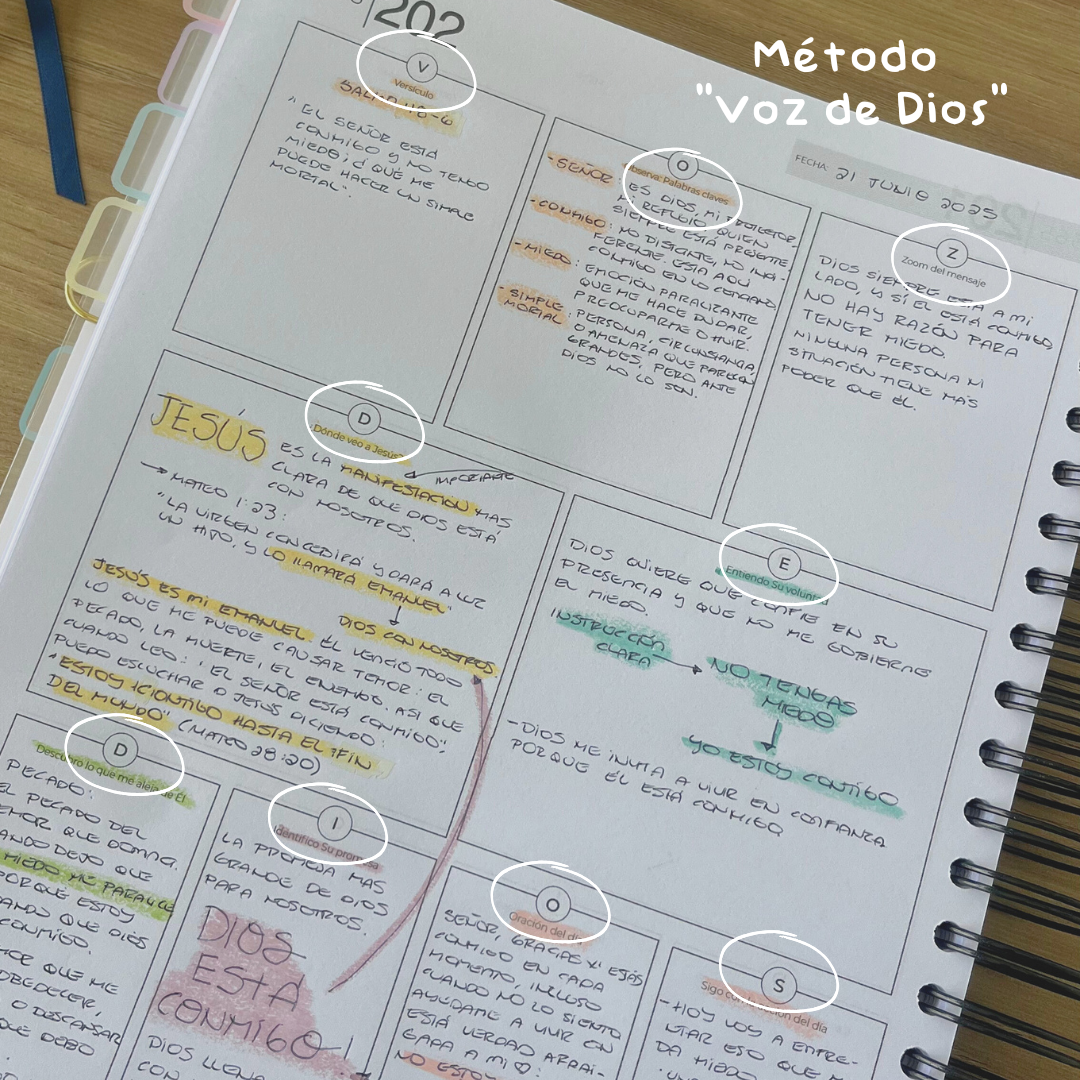 202
Método
"Voz de Dios"
FECHA: 21 JUNIO 2025
V
Versículo
"EL SEÑOR ESTÁ
CONMIGO Y NO TENGO
MIEDO; ¿QUÉ ME
PUEDE HACER UN SIMPLE
MORTAL".
O
Observa: Palabras claves
-SEÑOR: ES DIOS, MI PROTECTOR,
MI REFUGIO, QUIEN
SIEMPRE ESTÁ PRESENTE
-CONMIGO: NO DISTANTE, NO INDI-
FERENTE. ESTA AQUÍ
CONMIGO EN LO COTIDIANO
-MIEDO: EMOCIÓN PARALIZANTE
QUE ME HACE DUDAR,
PREOCUPARME O HUIR.
-SIMPLE MORTAL: PERSONA, CIRCUNSTANCIA
O AMENAZA QUE PARECEN
GRANDES, PERO ANTE
DIOS NO LO SON.
Z
Zoom del mensaje
DIOS SIEMPRE ESTA A MI
LADO, Y SÍ EL ESTÁ CONMIGO
NO HAY RAZÓN PARA
TENER MIEDO.
NINGUNA PERSONA NI
SITUACIÓN TIENE MÁS
PODER QUE ÉL.
D
¿Dónde veo a Jesús?
JESÚS ES LA MANIFESTACIÓN MAS
IMPORTANTE
CLARA DE QUE DIOS ESTÁ
CON NOSOTROS.
MATEO 1:23:
"LA VIRGEN CONCEBIRÁ Y DARÁ A LUZ
UN HIJO, Y LO LLAMARÁ EMANUEL"
DIOS CON NOSOTROS
JESÚS ES MI EMANUEL. ÉL VENCIÓ TODO
LO QUE ME PUEDE CAUSAR TEMOR: EL
PECADO, LA MUERTE, EL ENEMIGO. ASI QUE
CUANDO LEO: "EL SEÑOR ESTÁ CONMIGO",
PUEDO ESCUCHAR A JESÚS DICIENDO:
"ESTOY CONTIGO HASTA EL FIN
DEL MUNDO" (MATEO 28:20)
E
Entiendo Su volunt
DIOS QUIERE QUE CONFIE EN SU
PRESENCIA Y QUE NO ME GOBIERNE
EL MIEDO.
INSTRUCCIÓN
CLARA
NO TENGAS
MIEDO
YO ESTOY CONTIGO
-DIOS ME INVITA A VIVIR EN CONFIANZA
PORQUE ÉL ESTÁ CONMIGO
D
Descubro lo que me aleja de Él
PECADO:
EL PECADO DEL
QUE DOMINA.
DEJO QUE
MIEDO ME PARALICE
PORQUE ESTOY
QUE DIOS
CONMIGO.
QUE ME
O DESCANSAR
DEBO
I
Identifico Su promesa
LA PROMESA MAS
GRANDE DE DIOS
PARA NOSOTROS.
DIOS
ESTA
CONMIGO
DIOS LLENA
CON
O
Oración del día
SEÑOR, GRACIAS XQ ESTÁS
CONMIGO EN CADA
MOMENTO, INCLUSO
CUANDO NO LO SIENTO
AYÚDAME A VIVIR CON
ESTÁ VERDAD ARRAI-
GADA A MI ♡:
NO ESTOY
S
Sigo con la acción del día
-HOY VOY A ENFRE-
NTAR ESO QUE M
DA MIEDO